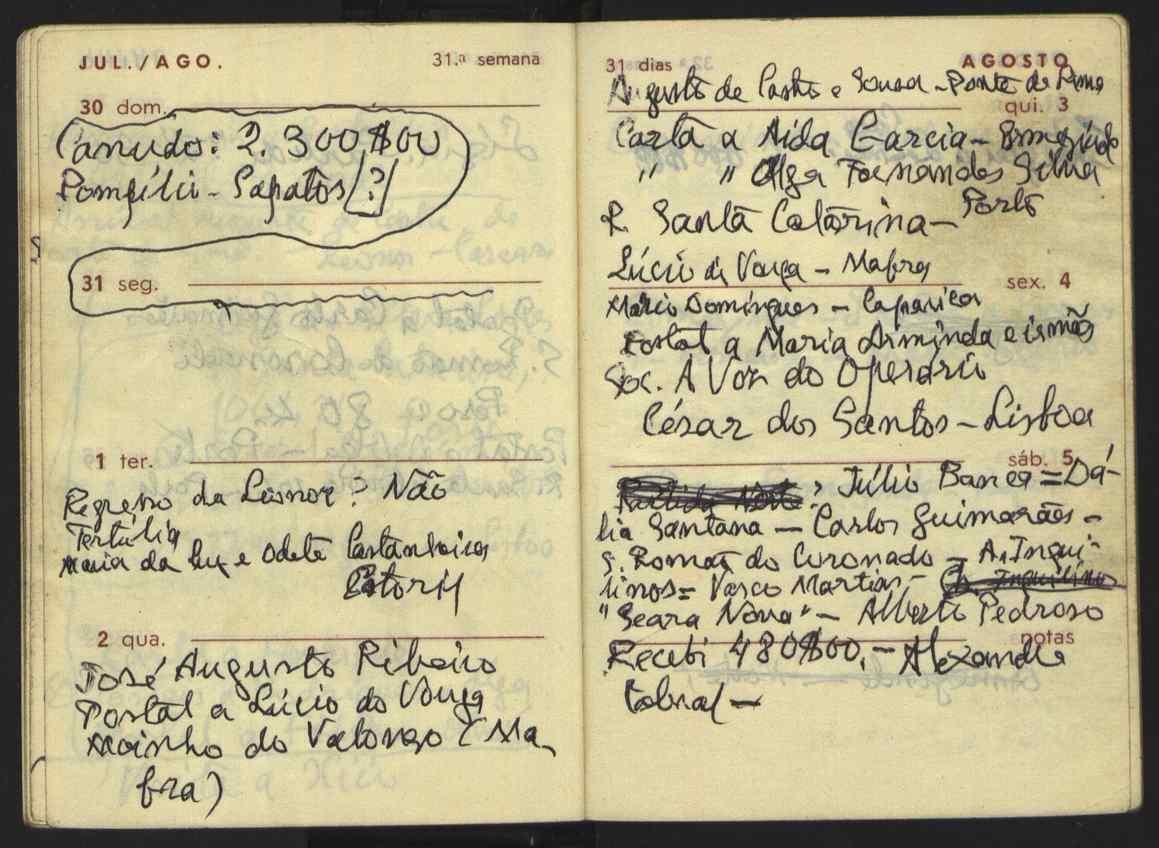 JUL./AGO.
31.ª semana
30 dom.
Canudo: 2.300$00
Pompílio - Sapatos [?]
31 seg.
1 ter.
Regresso da Leonor? Não
Tertúlia
Maria da Luz e Odete Castanheira
Estoril
2 qua.
José Augusto Ribeiro
Postal a Lúcio do Vouga
Moinho do Valongo (Ma-
fra)
31 dias
AGOSTO
Augusto de Castro e Sousa - Ponte de Lima
qui. 3
Carta a Aida Garcia - Ermezinde
" " Olga Fernandes Silva
Porto
R. Santa Catarina -
Lúcio do Vouga - Mafra
sex. 4
Mário Domingues - Caparica
Postal a Maria Arminda e irmãs
Soc. A Voz do Operário
César dos Santos - Lisboa
sáb. 5
Partida Norte? Júlio Banca = Dá-
lia Santana - Carlos Guimarães -
S. Romão do Coronado - A. Inqui-
linos = Vasco Martins - A. Inquilino
"Seara Nova" - Alberto Pedroso
notas
Recebi 480$00, - Alexandre
Cabral -